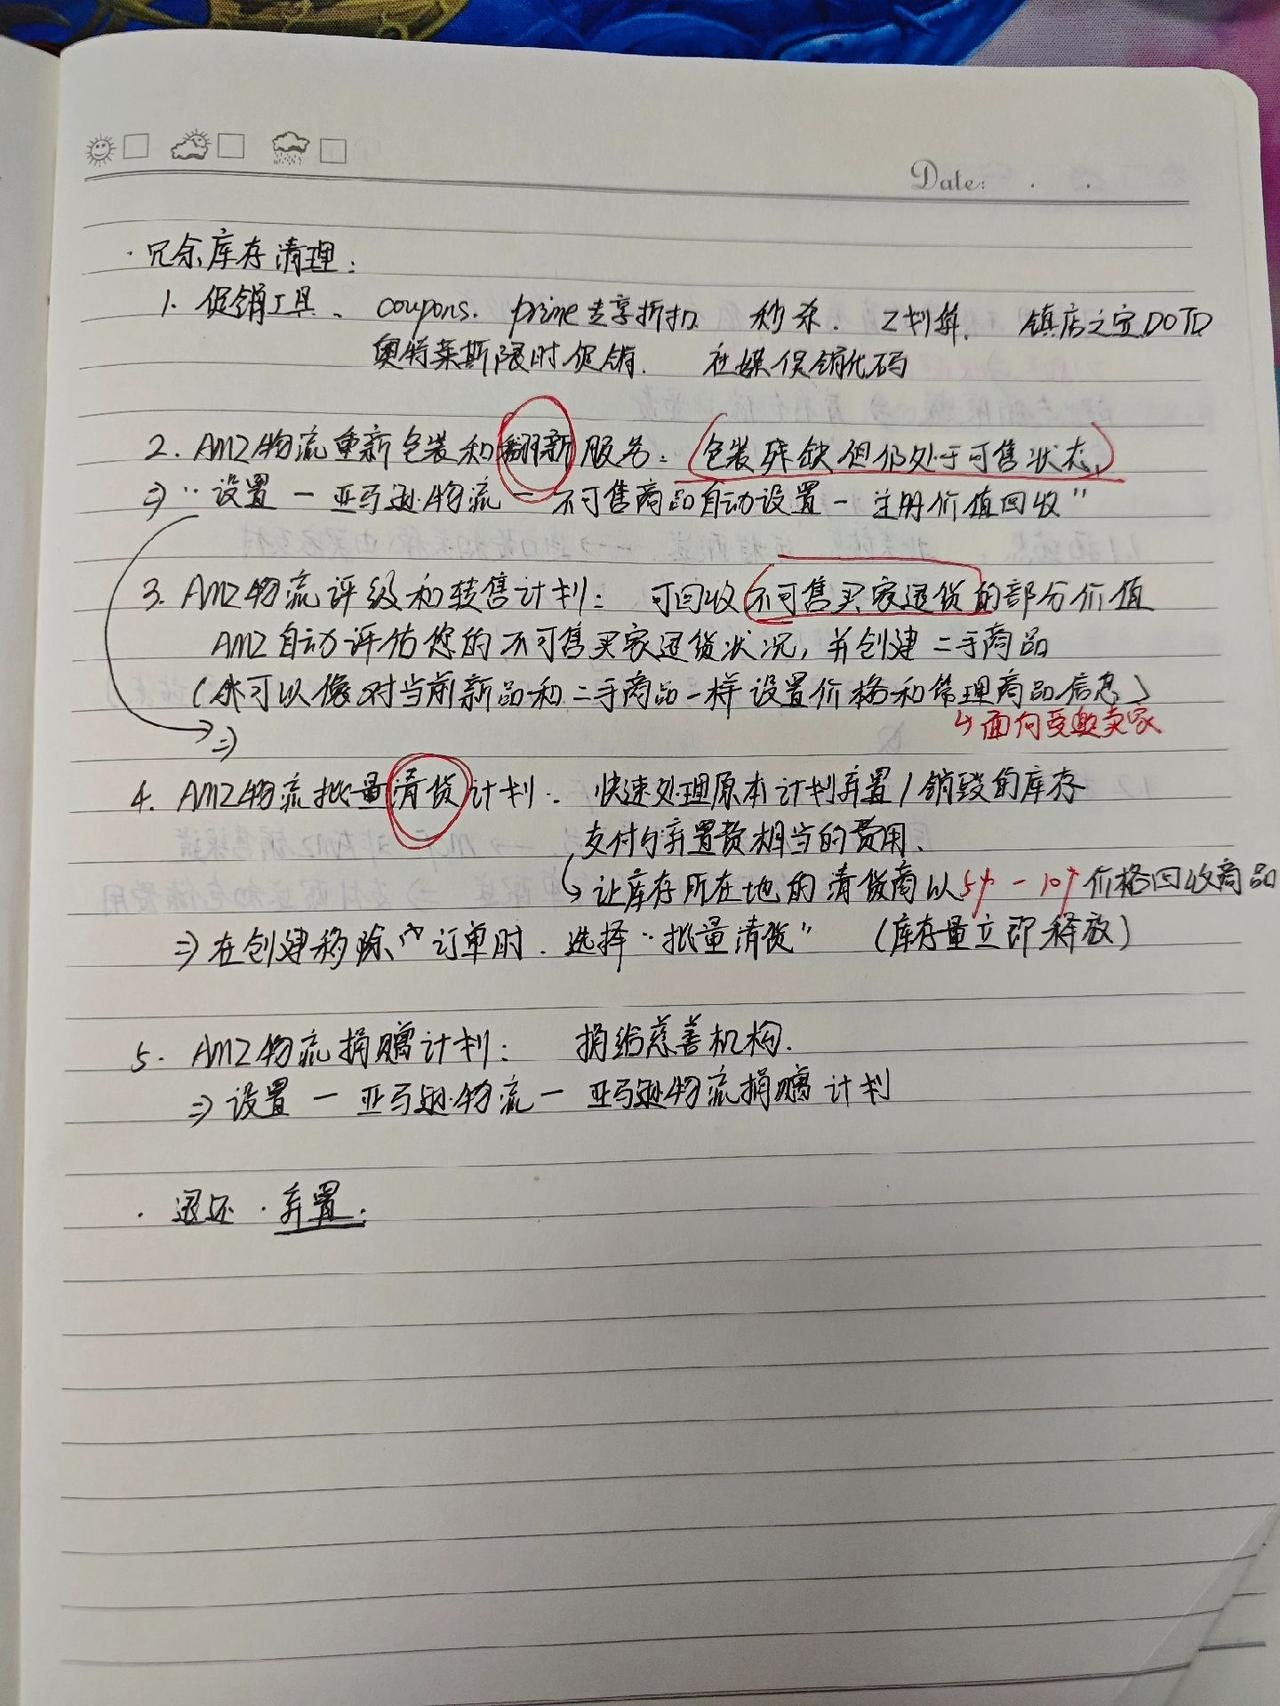 Date: . .
· 冗余库存清理:
1. 促销工具、 coupons. prime专享折扣 秒杀. Z划算. 镇店之宝DOTD
奥特莱斯限时促销. 社媒促销代码
2. AMZ物流重新包装和翻新服务: (包装残缺但仍处于可售状态)
⇒ "设置 — 亚马逊物流 — 不可售商品自动设置 — 注册价值回收"
3. AMZ物流评级和转售计划: 可回收不可售买家退货的部分价值
AMZ自动评估您的不可售买家退货状况, 并创建二手商品
(你可以像对当前新品和二手商品一样设置价格和管理商品信息)
↳面向受邀卖家
⇒
4. AMZ物流批量清货计划: 快速处理原本计划弃置/销毁的库存
支付与弃置费相当的费用.
↳ 让库存所在地的清货商以5% - 10% 价格回收商品
⇒ 在创建移除订单时. 选择"批量清货" (库存量立即释放)
5. AMZ物流捐赠计划: 捐给慈善机构.
⇒ 设置 — 亚马逊物流 — 亚马逊物流捐赠计划
· 退还 · 弃置.